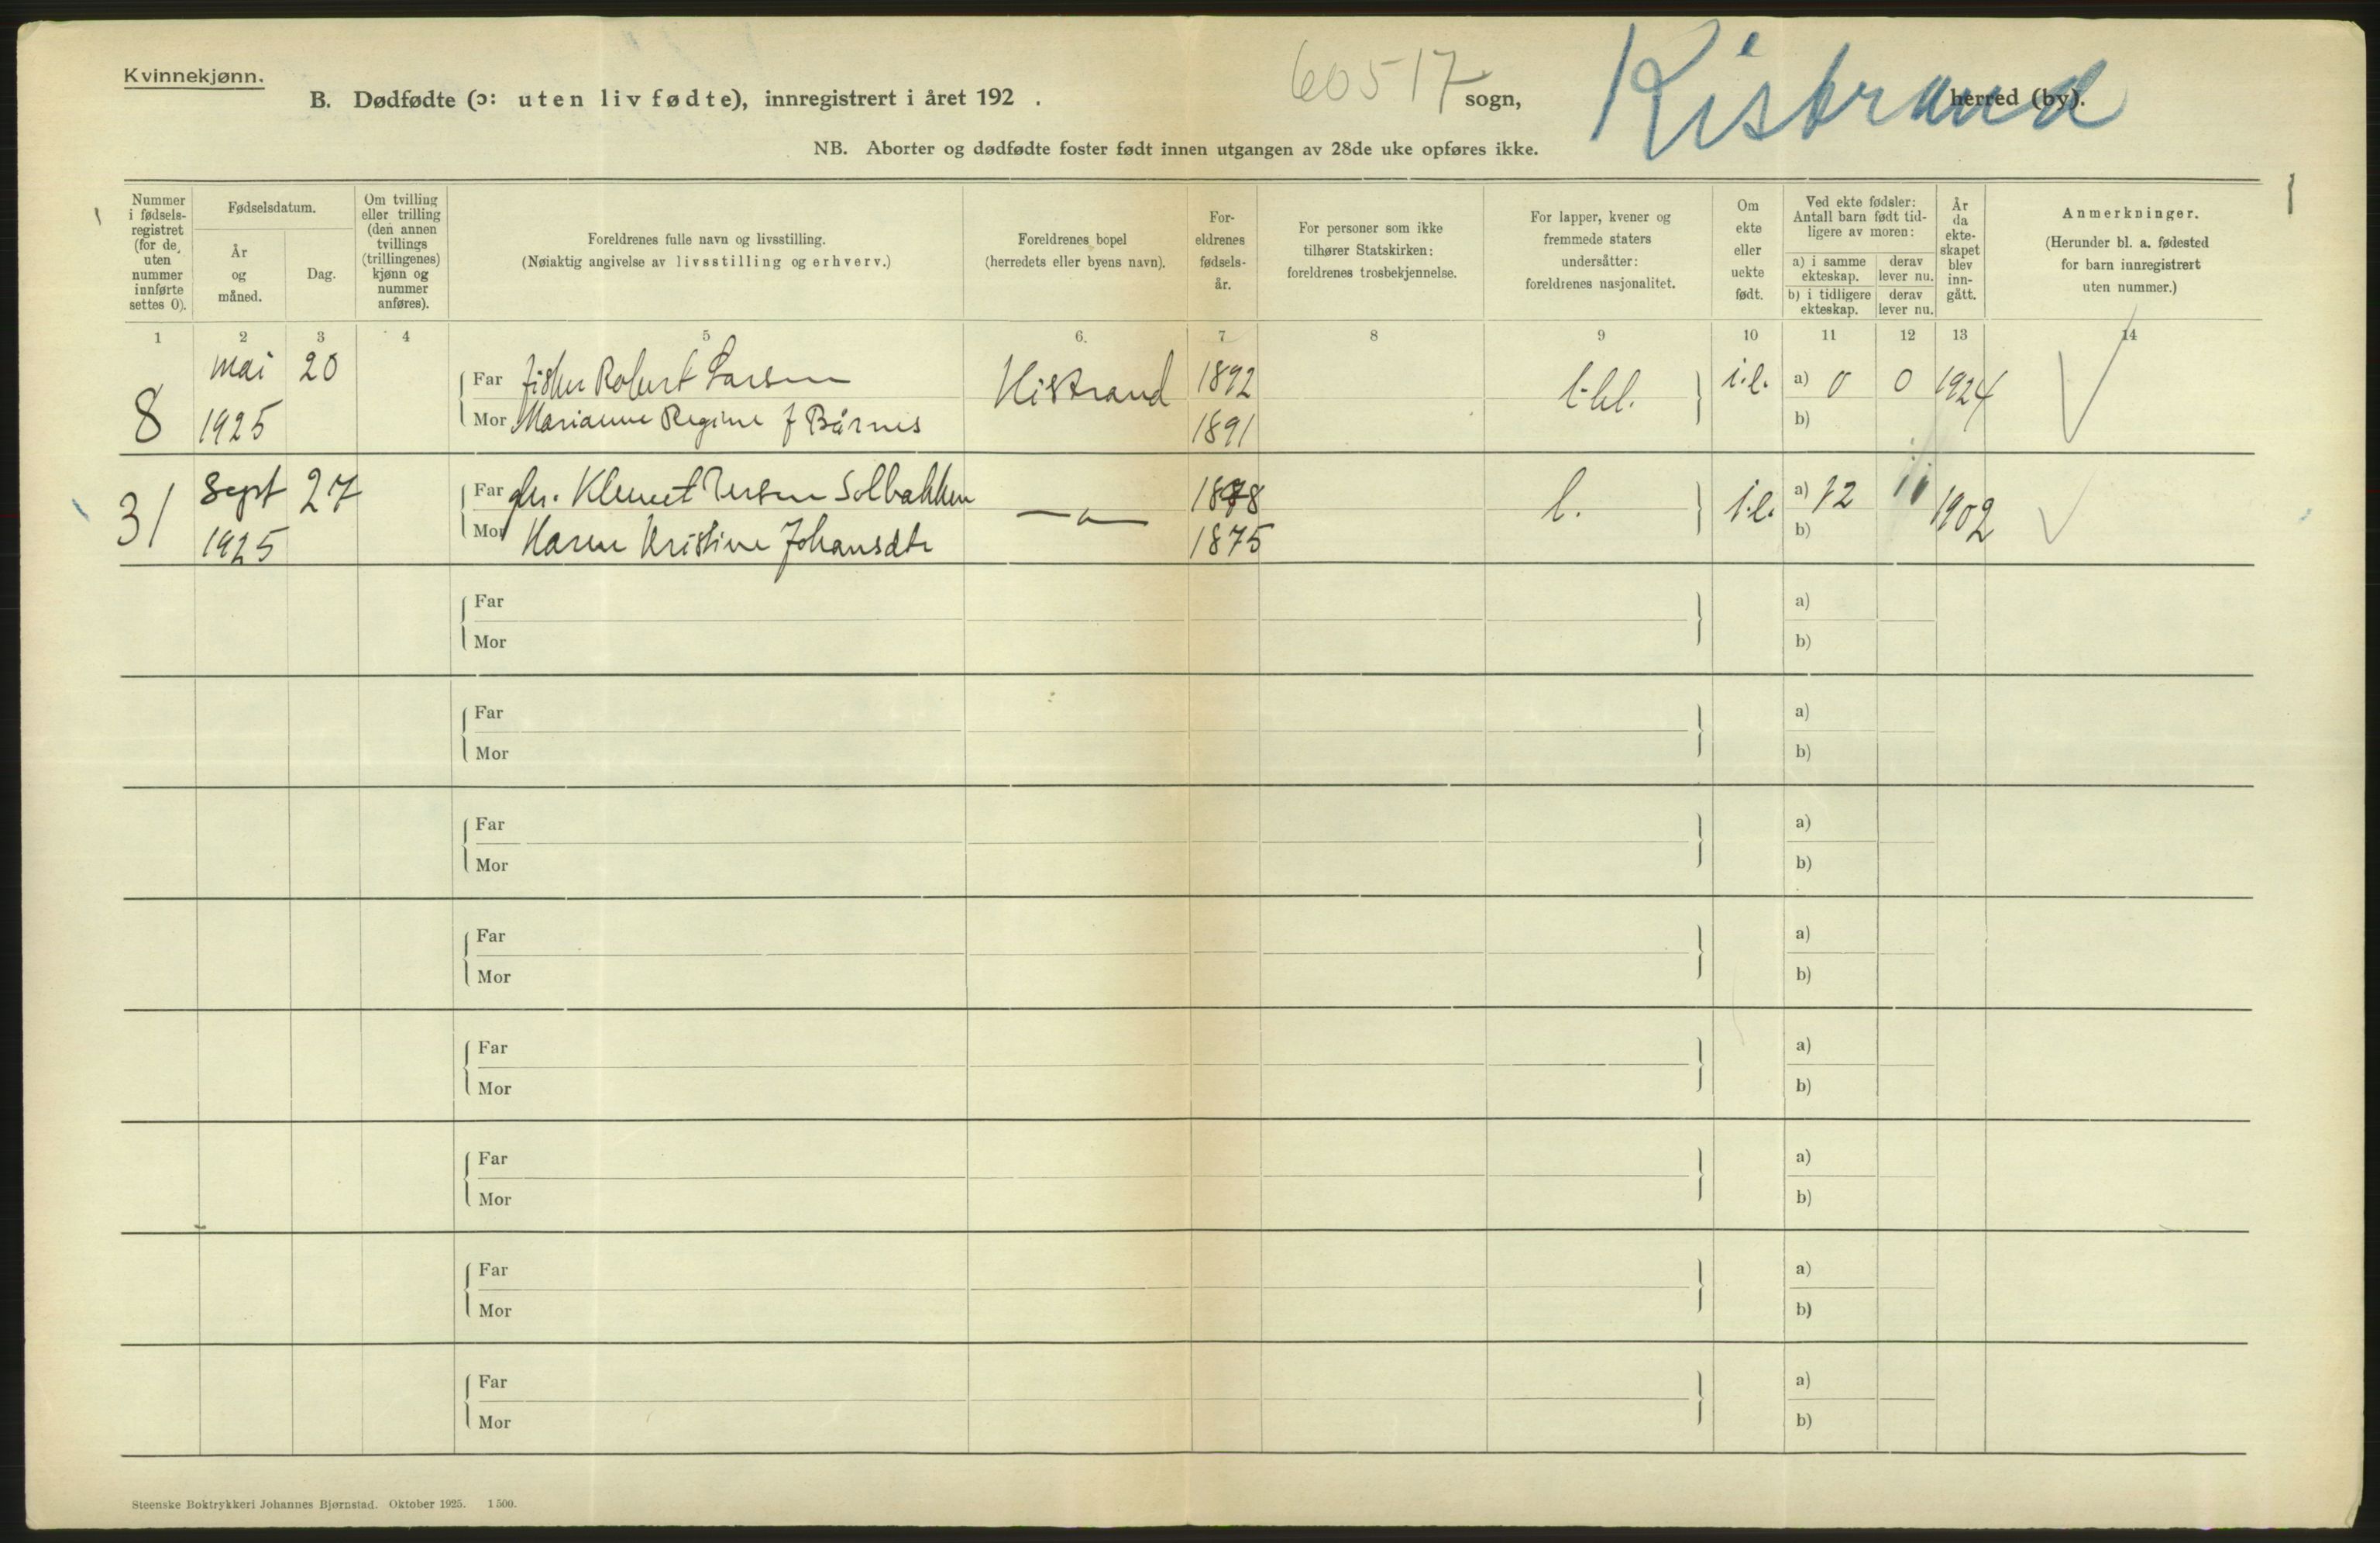 Kvinnekjønn.
B. Dødfødte (ɔ: uten liv fødte), innregistrert i året 192 . 60517 sogn, Kistrand herred (by).
NB. Aborter og dødfødte foster født innen utgangen av 28de uke opføres ikke.
Nummer i fødsels- registret (for de uten nummer innførte settes 0).
Fødselsdatum.
År og måned.
Dag.
Om tvilling eller trilling (den annen tvillings (trillingenes) kjønn og nummer anføres).
Foreldrenes fulle navn og livsstilling.
(Nøiaktig angivelse av livsstilling og erhverv.)
Foreldrenes bopel
(herredets eller byens navn).
For- eldrenes fødsels- år.
For personer som ikke tilhører Statskirken: foreldrenes trosbekjennelse.
For lapper, kvener og fremmede staters undersåtter: foreldrenes nasjonalitet.
Om ekte eller uekte født.
Ved ekte fødsler: Antall barn født tid- ligere av moren:
a) i samme ekteskap.
derav lever nu.
b) i tidligere ekteskap.
derav lever nu.
År da ekte- skapet blev inn- gått.
Anmerkninger.
(Herunder bl. a. fødested for barn innregistrert uten nummer.)
1 2 3 4 5 6. 7 8 9 10 11 12 13 14
8 mai 1925 20
Far fisker Robert Larsen Kistrand 1892 i.e. a) 0 0 1924
Mor Marianne Regine f Børnes 1891 b)
31 Sept 1925 27
Far Klemet Solbakken —"— 1878 l. i.e. a) 12 11 1902
Mor Karen Kristine Johansdtr 1875 b)
Far a)
Mor b)
Far a)
Mor b)
Far a)
Mor b)
Far a)
Mor b)
Far a)
Mor b)
Far a)
Mor b)
Far a)
Mor b)
Far a)
Mor b)
Steenske Boktrykkeri Johannes Bjørnstad. Oktober 1925. 1500.